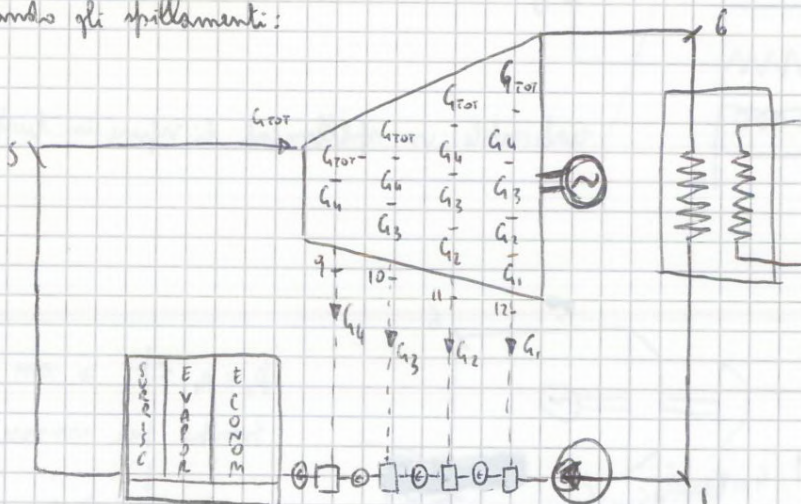 gli spillamenti:
6
GTOT
5
GTOT - G4
GTOT - G4 - G3
GTOT - G4 - G3 - G2
GTOT - G4 - G3 - G2 - G1
9
10
11
12
G4
G3
G2
G1
SURRISC
EVAPOR
ECONOM
1